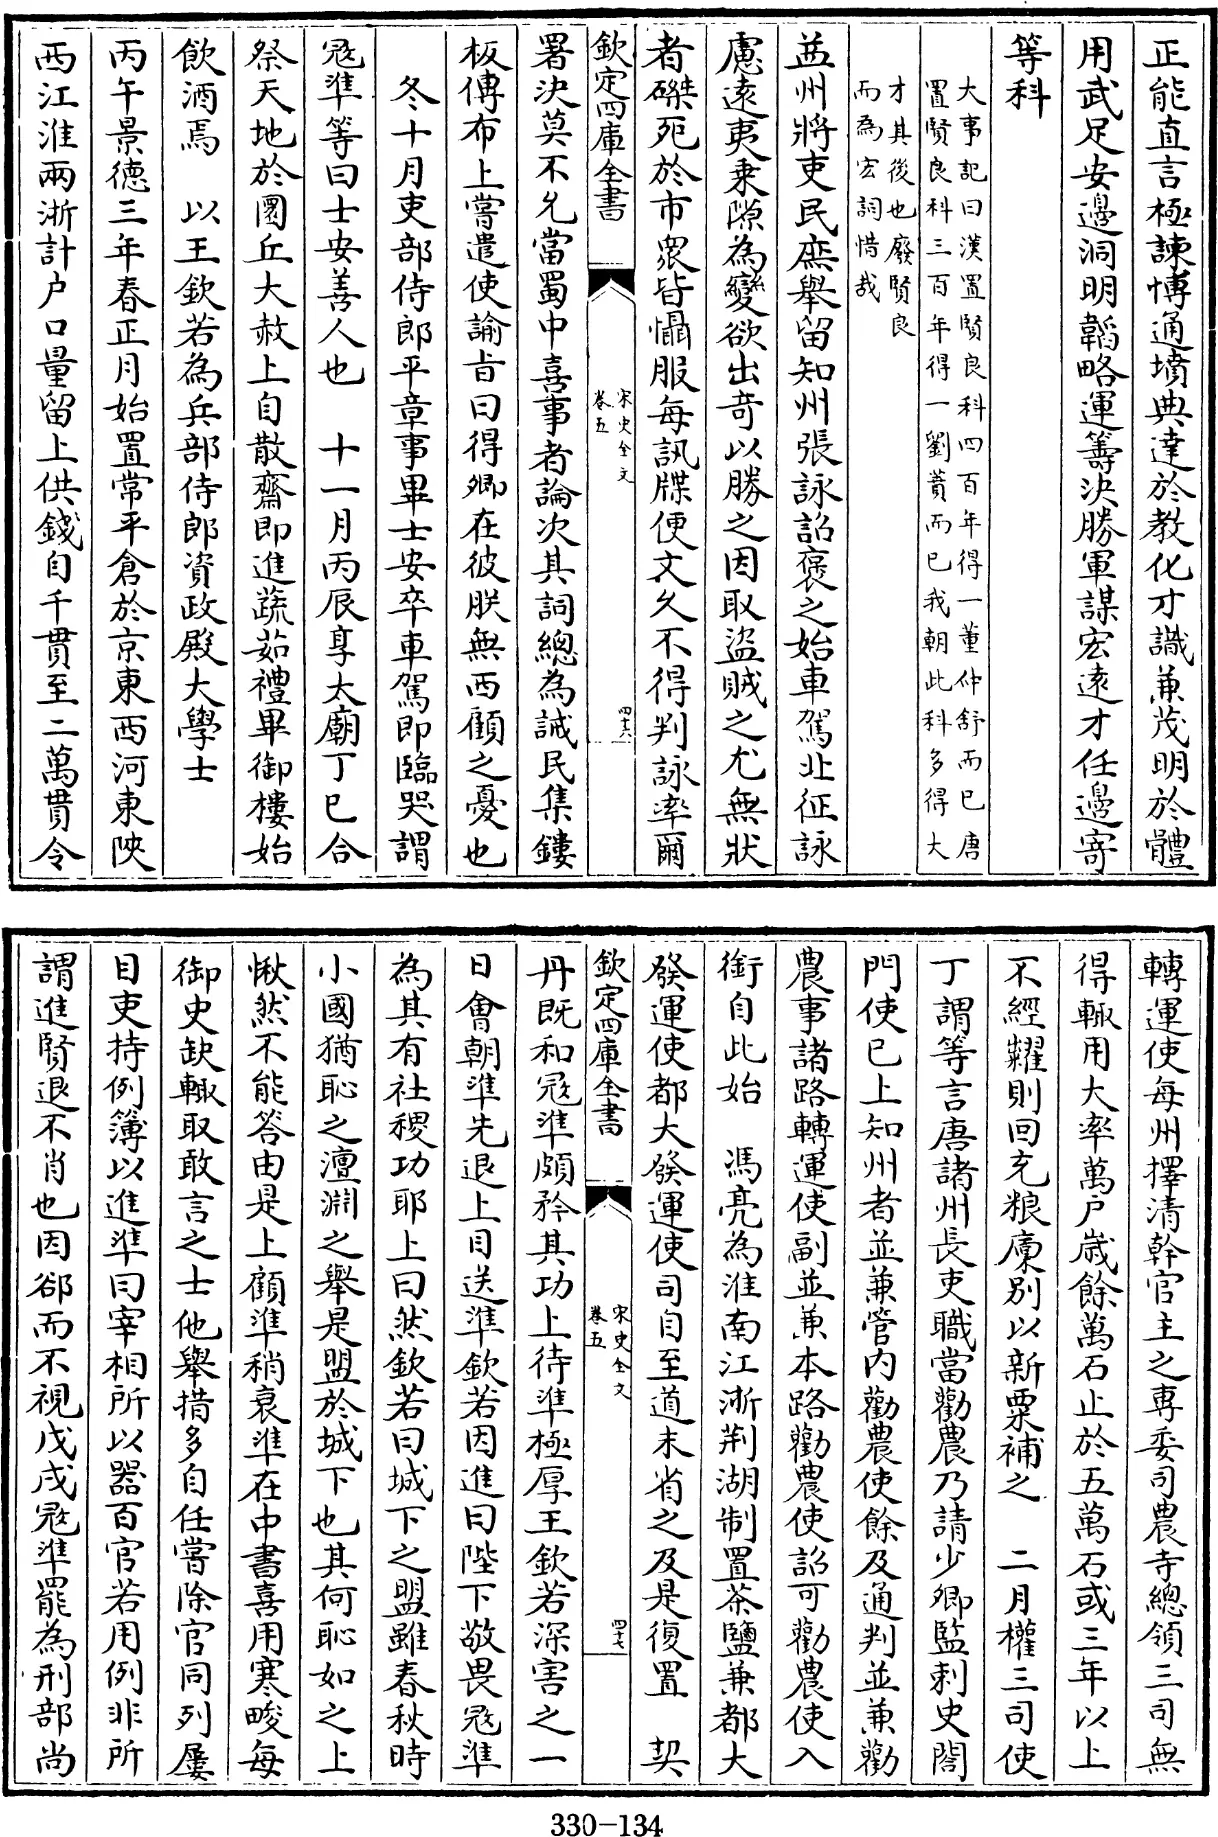 正能直言極諫博通墳典達於教化才識兼茂明於體
用武足安邊洞明韜略運籌決勝軍謀宏遠才任邊寄
等科
大事記曰漢置賢良科四百年得一董仲舒而已唐
置賢良科三百年得一劉蕡而已我朝此科多得大
才其後也廢賢良
而為宏詞惜哉
益州將吏民庶舉留知州張詠詔褒之始車駕北征詠
慮遠夷乘隙為變欲出奇以勝之因取盜賊之尤無狀
者磔死於市衆皆懾服每訊牒便文久不得判詠率爾
欽定四庫全書
宋史全文
卷五
四十六
署決莫不允當蜀中喜事者論次其詞總為誡民集鏤
板傳布上嘗遣使諭旨曰得卿在彼朕無西顧之憂也
冬十月吏部侍郎平章事畢士安卒車駕即臨哭謂
寇準等曰士安善人也　十一月丙辰享太廟丁巳合
祭天地於圜丘大赦上自散齋即進蔬茹禮畢御樓始
飲酒焉　以王欽若為兵部侍郎資政殿大學士
丙午景德三年春正月始置常平倉於京東西河東陜
西江淮兩浙計户口量留上供錢自千貫至二萬貫令
轉運使每州擇清幹官主之専委司農寺總領三司無
得輙用大率萬户歳餘萬石止於五萬石或三年以上
不經糶則回充粮廩别以新粟補之　二月權三司使
丁謂等言唐諸州長吏職當勸農乃請少卿監刺史閤
門使已上知州者並兼管内勸農使餘及通判並兼勸
農事諸路轉運使副並兼本路勸農使詔可勸農使入
銜自此始　馮亮為淮南江浙荆湖制置茶鹽兼都大
發運使都大發運使司自至道末省之及是復置　契
欽定四庫全書
宋史全文
卷五
四十七
丹既和寇準頗矜其功上待準極厚王欽若深害之一
日會朝準先退上目送準欽若因進曰陛下敬畏寇準
為其有社稷功耶上曰然欽若曰城下之盟雖春秋時
小國猶恥之澶淵之舉是盟於城下也其何恥如之上
愀然不能答由是上顧準稍衰準在中書喜用寒畯每
御史缺輙取敢言之士他舉措多自任嘗除官同列屢
目吏持例簿以進準曰宰相所以器百官若用例非所
謂進賢退不肖也因郤而不視戊戌寇準罷為刑部尚
330-134